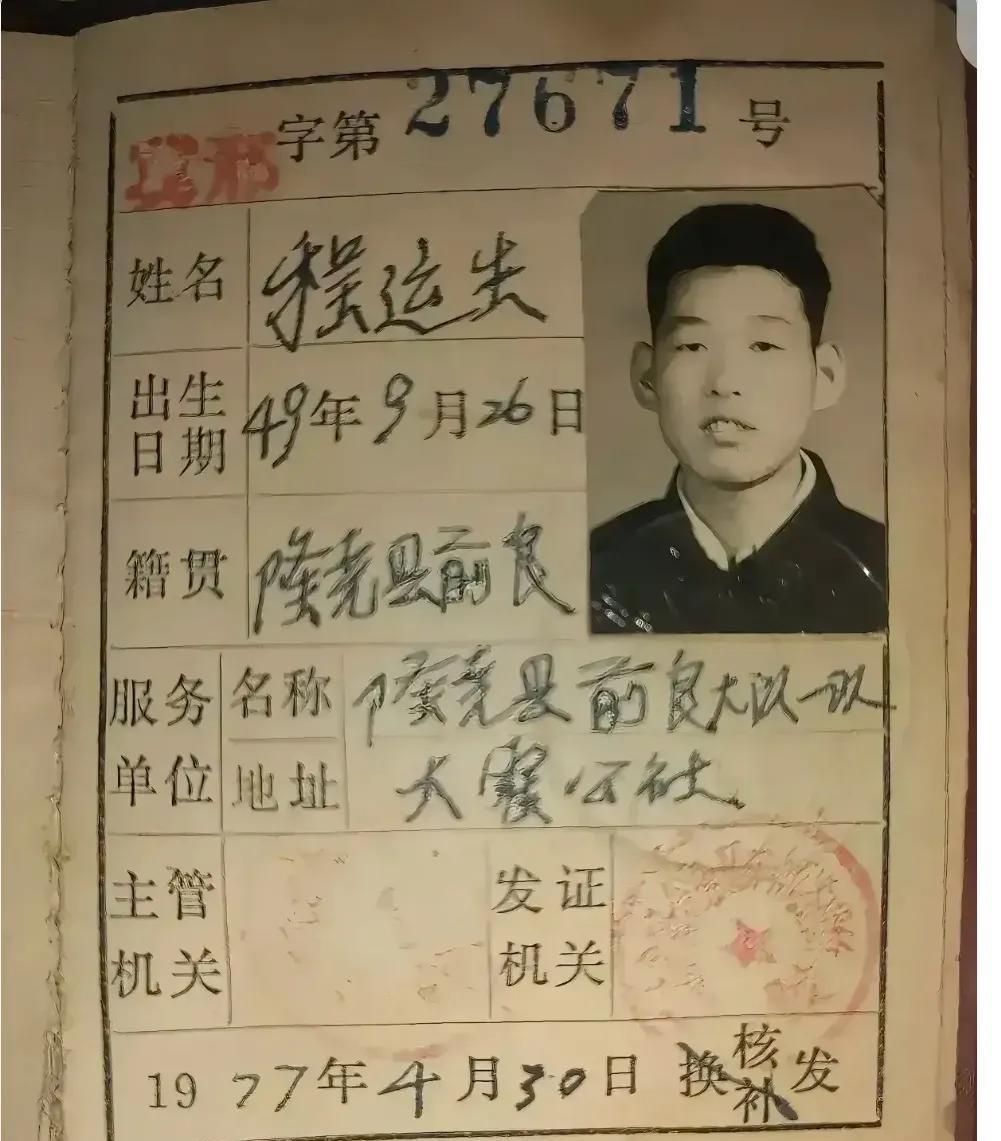 冀邢字第27671号
姓名 程运
出生日期 49年9月26日
籍贯 隆尧县前良
服务单位 名称 隆尧县前良大队一队
地址 大霍公社
主管机关
发证机关
1977年4月30日 换核补发